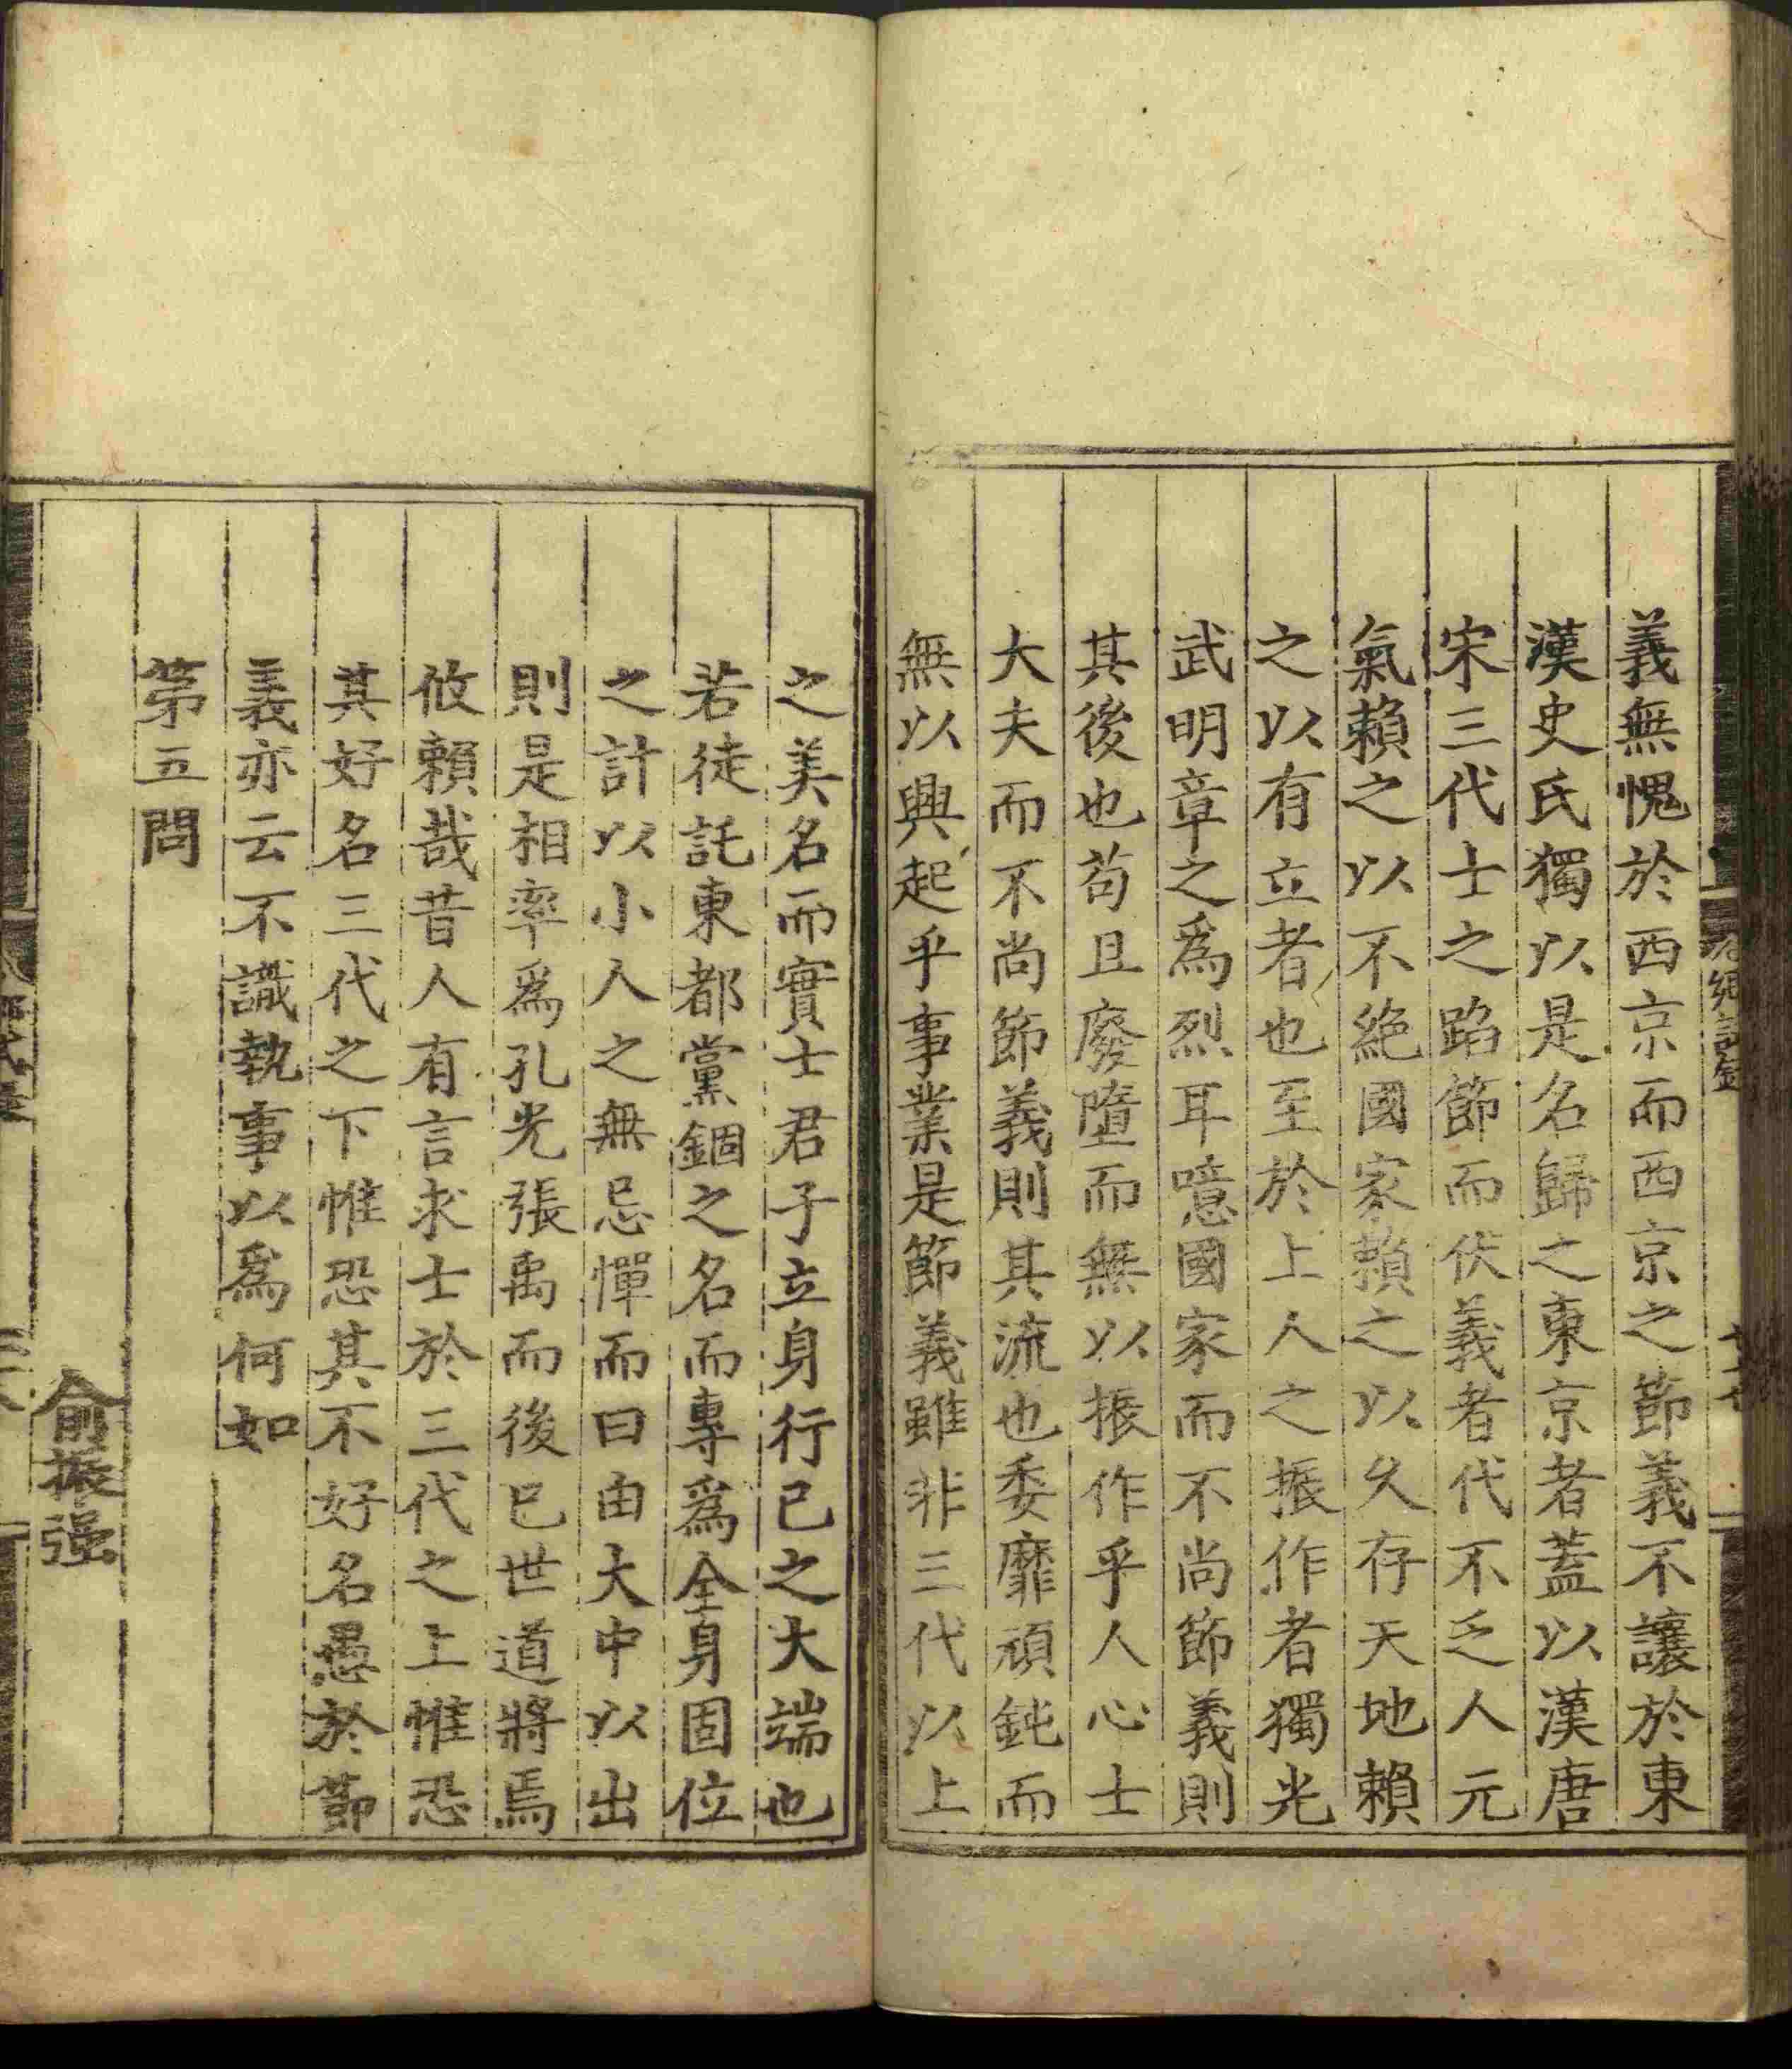 義無愧於西京而西京之節義不讓於東
漢史氏獨以是名歸之東京者蓋以漢唐
宋三代士之蹈節而伏義者代不乏人元
氣賴之以不絶國家賴之以久存天地賴
之以有立者也至於上人之振作者獨光
武明章之爲烈耳噫國家而不尚節義則
其後也苟且廢墮而無以振作乎人心士
大夫而不尚節義則其流也委靡頑鈍而
無以興起乎事業是節義雖非三代以上
之美名而實士君子立身行已之大端也
若徒託東都黨錮之名而專爲全身固位
之計以小人之無忌憚而曰由大中以出
則是相率爲孔光張禹而後已世道將焉
攸賴哉昔人有言求士於三代之上惟恐
其好名三代之下惟恐其不好名愚於節
義亦云不識執事以爲何如
第五問
俞振强